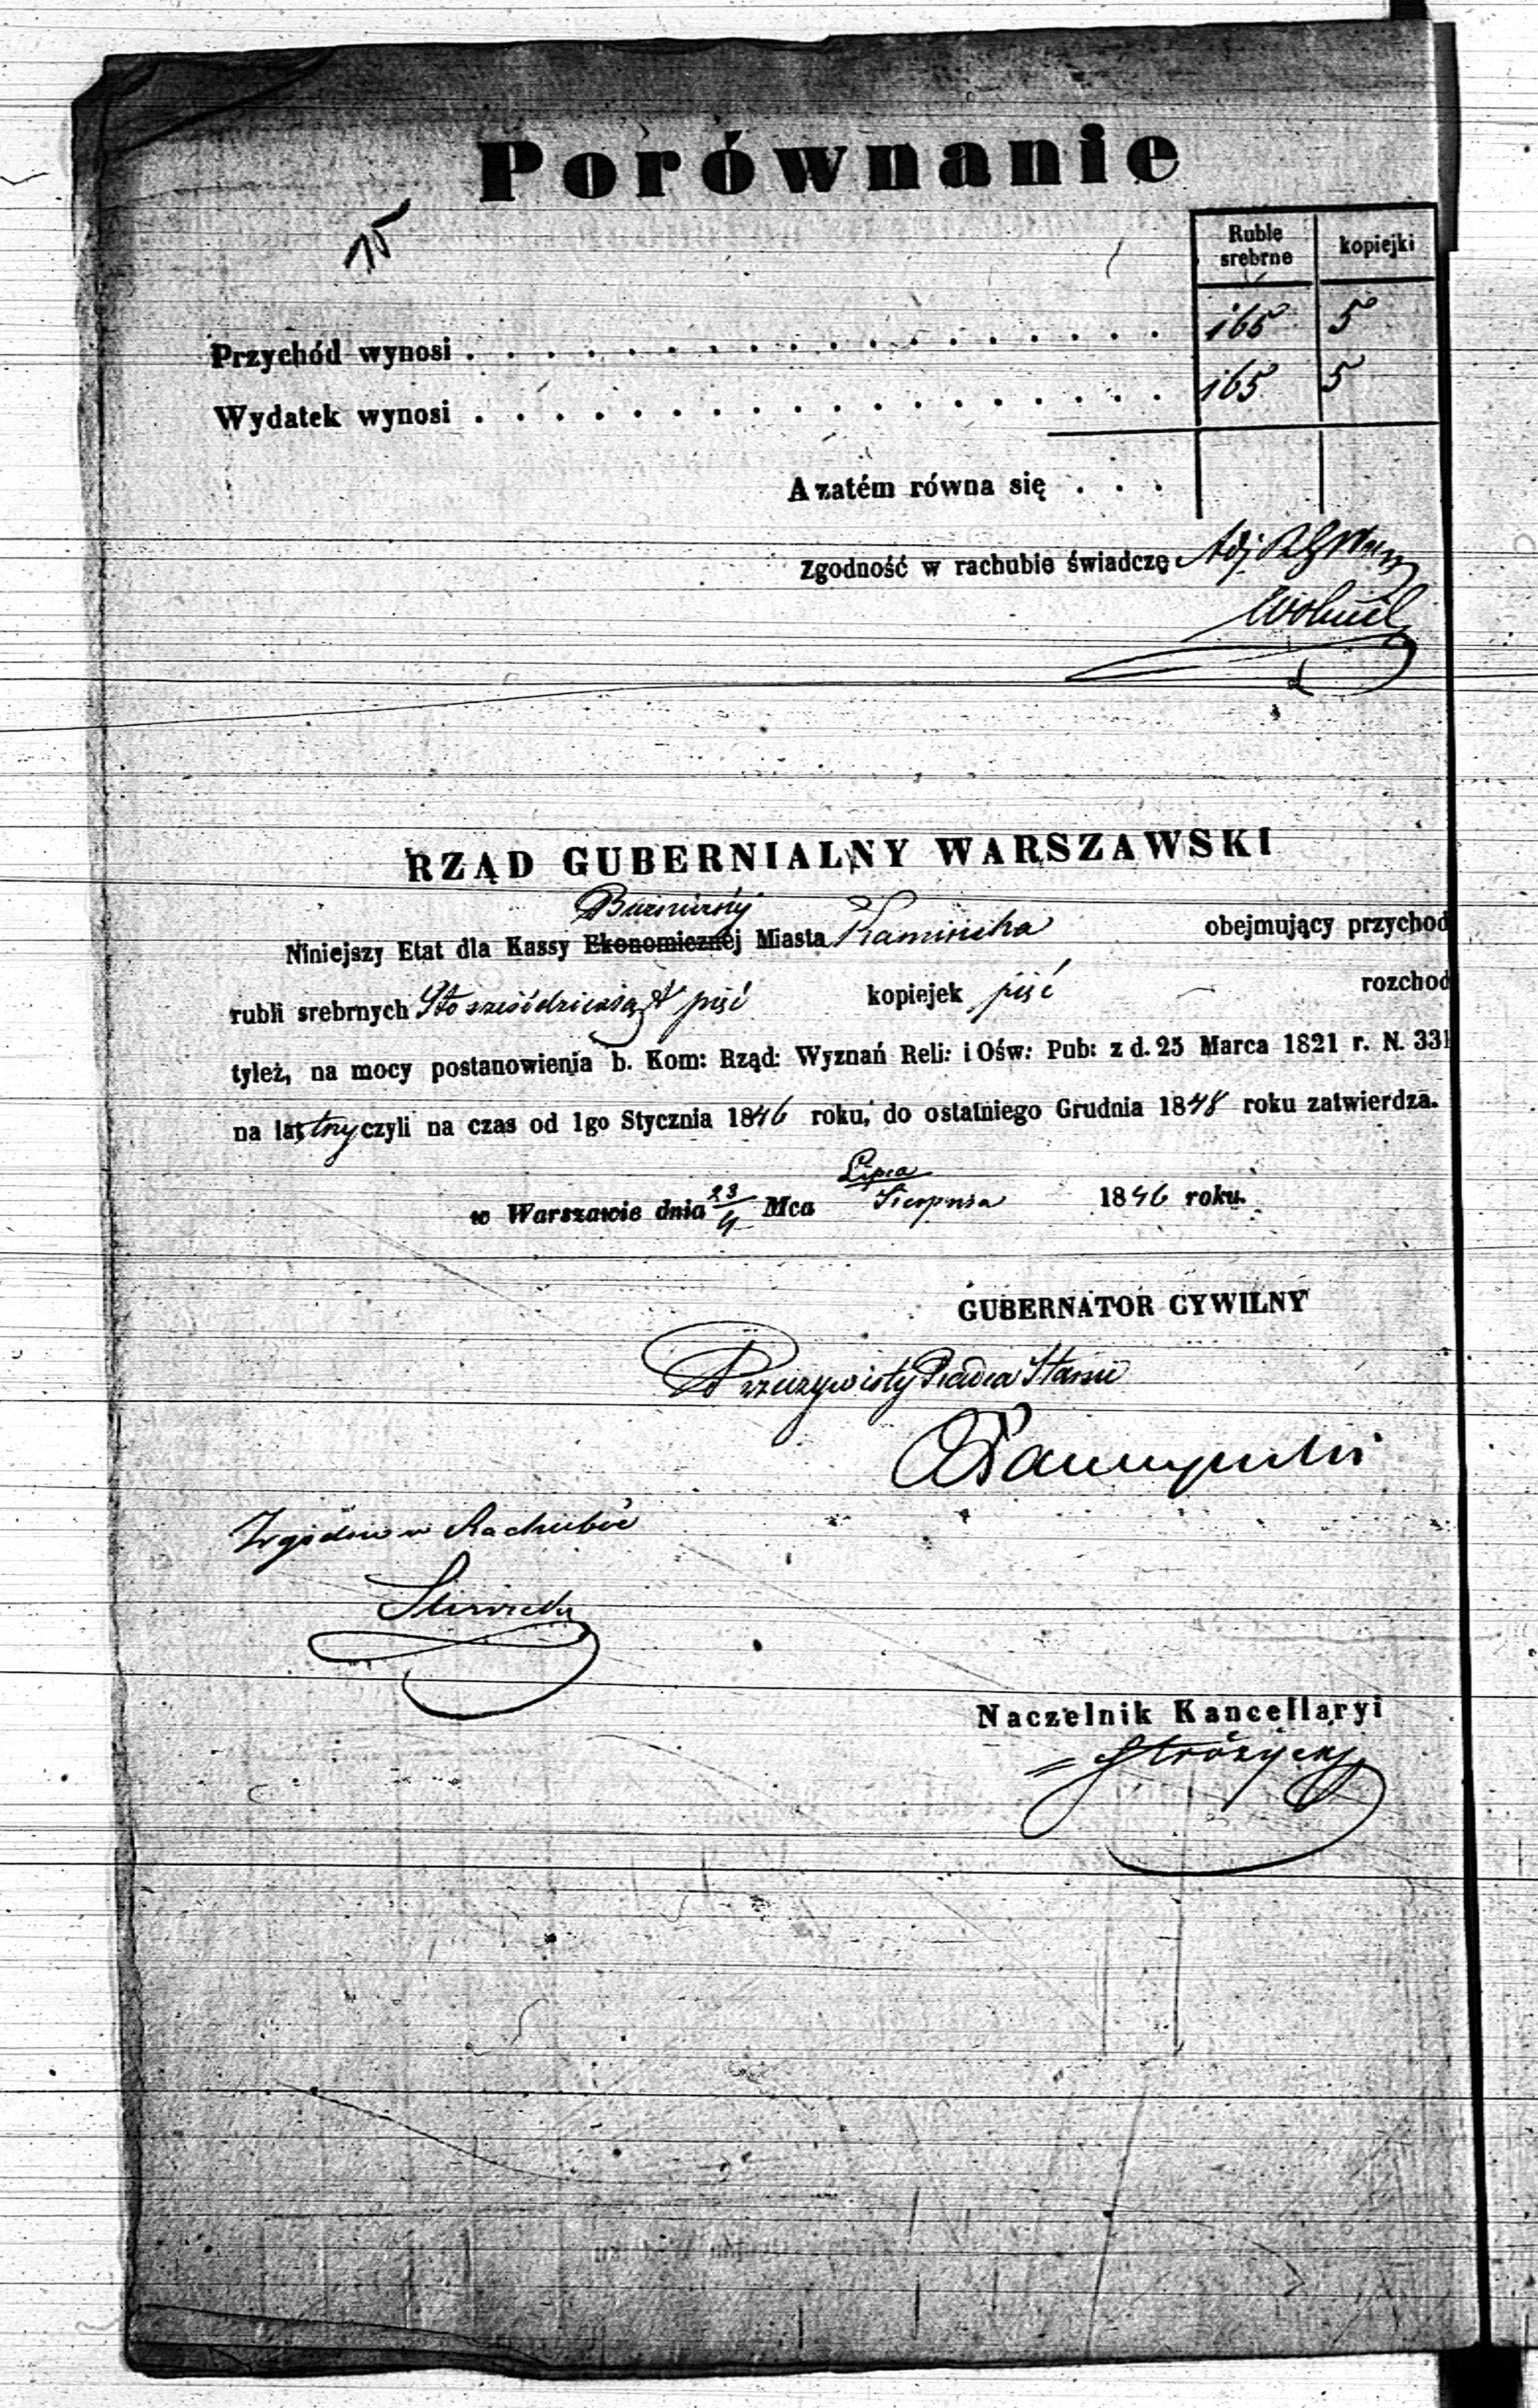 Porównanie
Ruble srebrne kopiejki
Przychód wynosi . . . . . . . . . . . . . . . . . . 165 5
Wydatek wynosi . . . . . . . . . . . . . . . . . . 165 5
A zatém równa się . . .
Zgodność w rachubie świadczę Adj
RZĄD GUBERNIALNY WARSZAWSKI
Bużniczny
Niniejszy Etat dla Kassy Ekonomicznej Miasta Kamińska obejmujący przychod
rubli srebrnych Sto sześćdziesiąt pięć kopiejek pięć rozchod
tyleż, na mocy postanowienia b. Kom: Rząd: Wyznań Reli: i Ośw: Pub: z d. 25 Marca 1821 r. N. 331
na lat trzy czyli na czas od 1go Stycznia 1846 roku, do ostatniego Grudnia 1848 roku zatwierdza.
w Warszawie dnia 23/4 Mca Lipca/Sierpnia 1846 roku.
GUBERNATOR CYWILNY
Rzeczywisty Radca Stanu
Zgodno w Rachubie
Naczelnik Kancellaryi